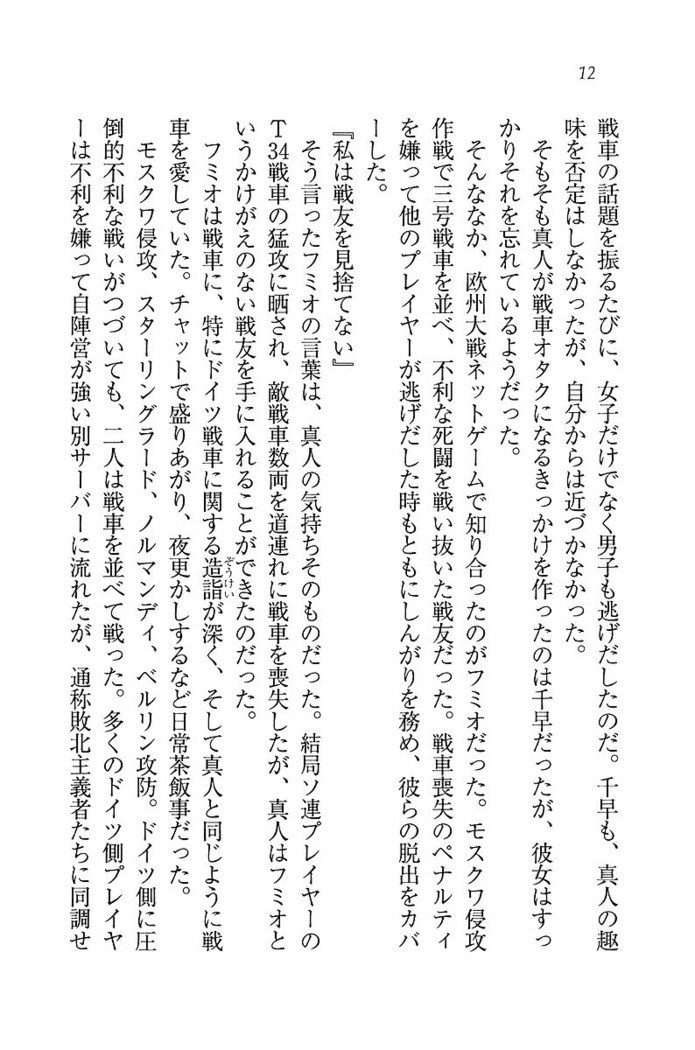 12
戦車の話題を振るたびに、女子だけでなく男子も逃げだしたのだ。千早も、真人の趣
味を否定はしなかったが、自分からは近づかなかった。
そもそも真人が戦車オタクになるきっかけを作ったのは千早だったが、彼女はすっ
かりそれを忘れているようだった。
そんななか、欧州大戦ネットゲームで知り合ったのがフミオだった。モスクワ侵攻
作戦で三号戦車を並べ、不利な死闘を戦い抜いた戦友だった。戦車喪失のペナルティ
を嫌って他のプレイヤーが逃げだした時もともにしんがりを務め、彼らの脱出をカバ
ーした。
『私は戦友を見捨てない』
そう言ったフミオの言葉は、真人の気持ちそのものだった。結局ソ連プレイヤーの
T34戦車の猛攻に晒され、敵戦車数両を道連れに戦車を喪失したが、真人はフミオと
いうかけがえのない戦友を手に入れることができたのだった。
フミオは戦車に、特にドイツ戦車に関する造詣ぞうけいが深く、そして真人と同じように戦
車を愛していた。チャットで盛りあがり、夜更かしするなど日常茶飯事だった。
モスクワ侵攻、スターリングラード、ノルマンディ、ベルリン攻防。ドイツ側に圧
倒的不利な戦いがつづいても、二人は戦車を並べて戦った。多くのドイツ側プレイヤ
ーは不利を嫌って自陣営が強い別サーバーに流れたが、通称敗北主義者たちに同調せ